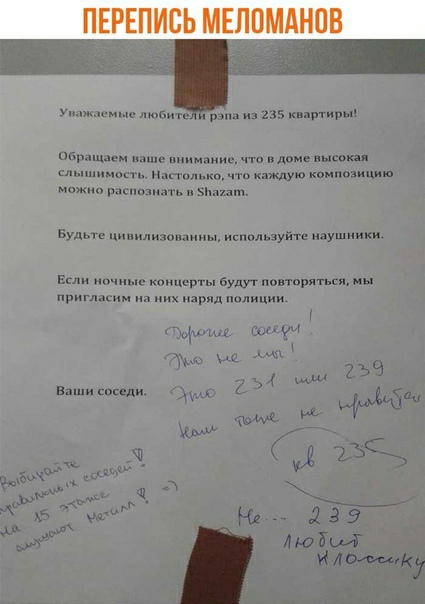 ПЕРЕПИСЬ МЕЛОМАНОВ
Уважаемые любители рэпа из 235 квартиры!
Обращаем ваше внимание, что в доме высокая
слышимость. Настолько, что каждую композицию
можно распознать в Shazam.
Будьте цивилизованны, используйте наушники.
Если ночные концерты будут повторяться, мы
пригласим на них наряд полиции.
Дорогие соседи!
Это не мы!
Ваши соседи.
Это 231 или 239
Нам тоже не нравится
кв 235
Выбирайте
правильных соседей!
На 15 этаже
слушают Металл! =)
Не... 239
любит
классику